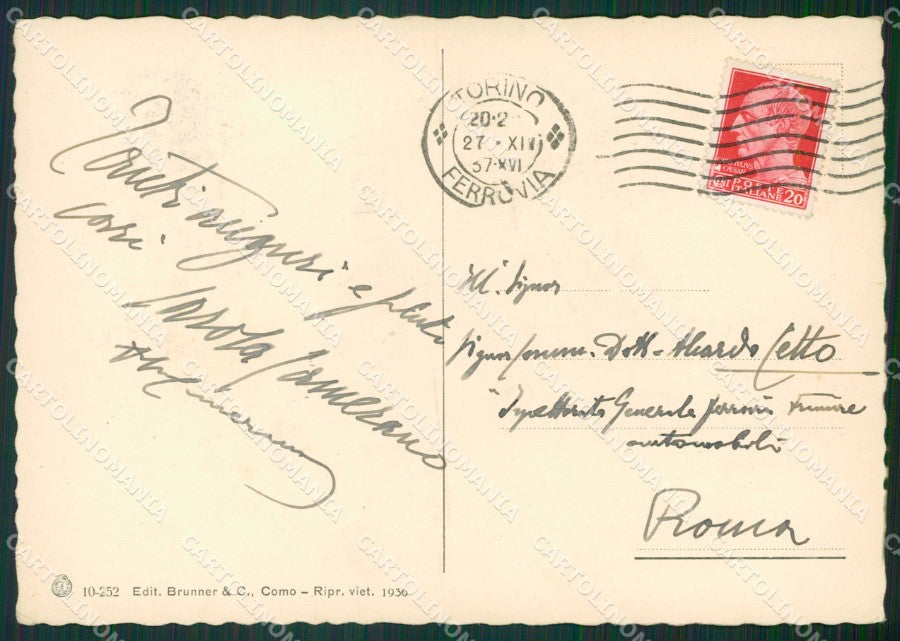 TORINO
20·2
27 · XII
37·XVI
FERROVIA
POSTE
CENT ITALIANE 20
Tanti auguri e saluti
cari.
Ill. Signor
Signor Comm. Dott. Alcardo Cetto
Ispettorato Generale ferrovie tramvie
automobili
Roma
10-252 Edit. Brunner & C., Como – Ripr. viet. 1936
CARTOLINOMANIA